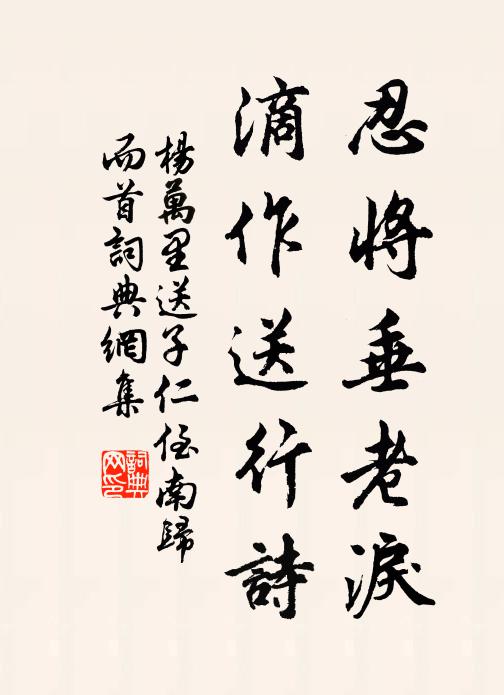 忍將垂老淚
滴作送行詩
楊萬里送子仁侄南歸
兩首詞典網集
詞典
网印